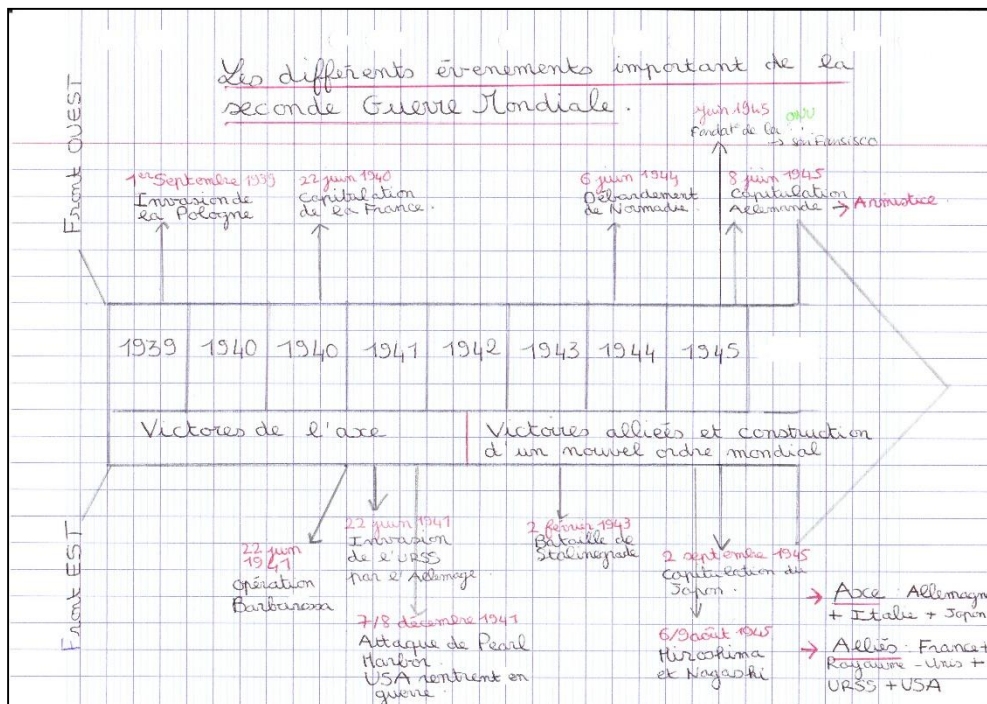 Les différents évenements important de la
seconde Guerre Mondiale.
Front OUEST
1er Septembre 1939
Invasion de
la Pologne
22 juin 1940
Capitulation
de la France.
6 juin 1944
Débardement
de Normadie.
juin 1945
Fondat° de la ONU
→ san Fransisco
8 juin 1945
Capitulation
Allemande → Armistice.
1939 1940 1940 1941 1942 1943 1944 1945
Victores de l'axe
Victoires alliées et construction
d'un nouvel ordre mondial
Front EST
22 juin
1941
Opération
Barbarossa
22 juin 1941
Invasion
de l'URSS
par l'Allemage.
7/8 décembre 1941
Attaque de Pearl
Harbor.
USA rentrent en
guerre.
2 février 1943
Bataille de
Stalinegrade
2 septembre 1945
Capitulation du
Japon.
6/9 août 1945
Hiroshima
et Nagashi
→ Axe : Allemagne
+ Italie + Japon
→ Alliés : France +
Royaume-Unis +
URSS + USA